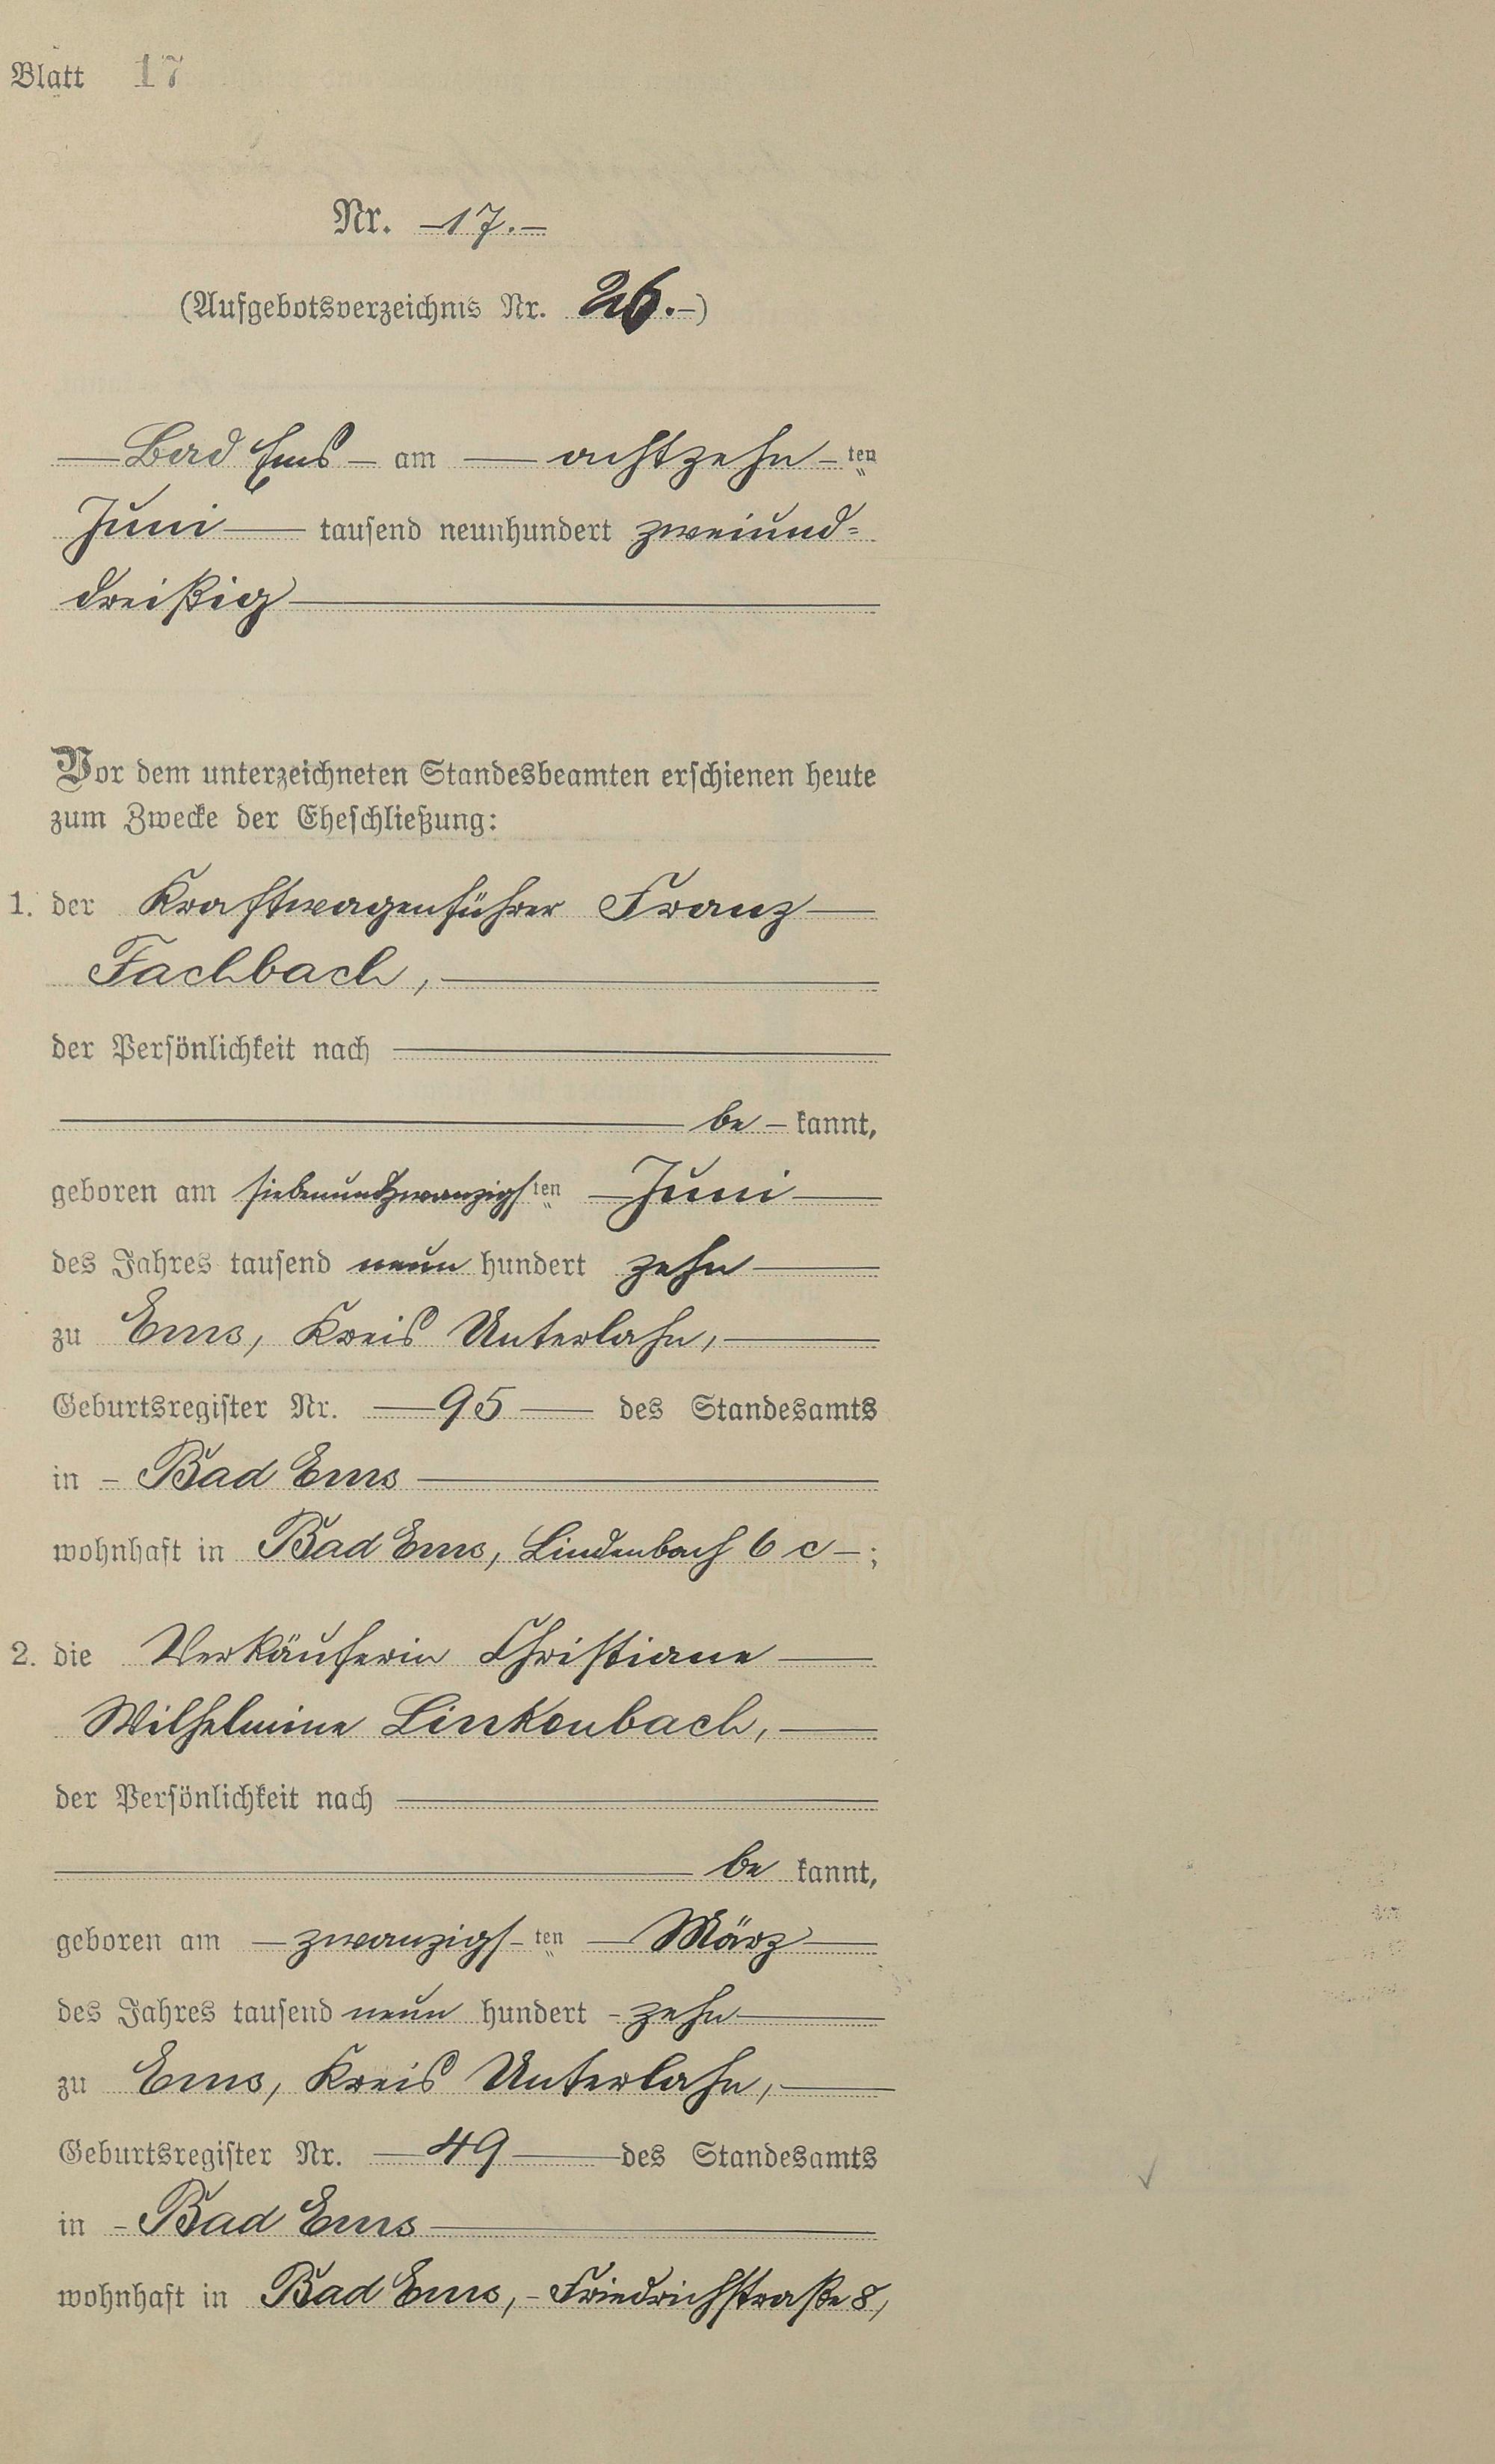 Blatt 17
Nr. 17.
(Aufgebotsverzeichnis Nr. 26.)
Bad Ems am achtzehn ten
Juni tausend neunhundert zweiund=
dreißig
Vor dem unterzeichneten Standesbeamten erschienen heute
zum Zwecke der Eheschließung:
1. der Kraftwagenführer Franz
Fachbach,
der Persönlichkeit nach
be kannt,
geboren am siebenundzwanzigs ten Juni
des Jahres tausend neun hundert zehn
zu Ems, Kreis Unterlahn,
Geburtsregister Nr. 95 des Standesamts
in Bad Ems
wohnhaft in Bad Ems, Lindenbach 6 c ;
2. die Verkäuferin Christiane
Wilhelmine Linkenbach,
der Persönlichkeit nach
be kannt,
geboren am zwanzigs ten März
des Jahres tausend neun hundert zehn
zu Ems, Kreis Unterlahn,
Geburtsregister Nr. 49 des Standesamts
in Bad Ems
wohnhaft in Bad Ems, Friedrichstraße 8,